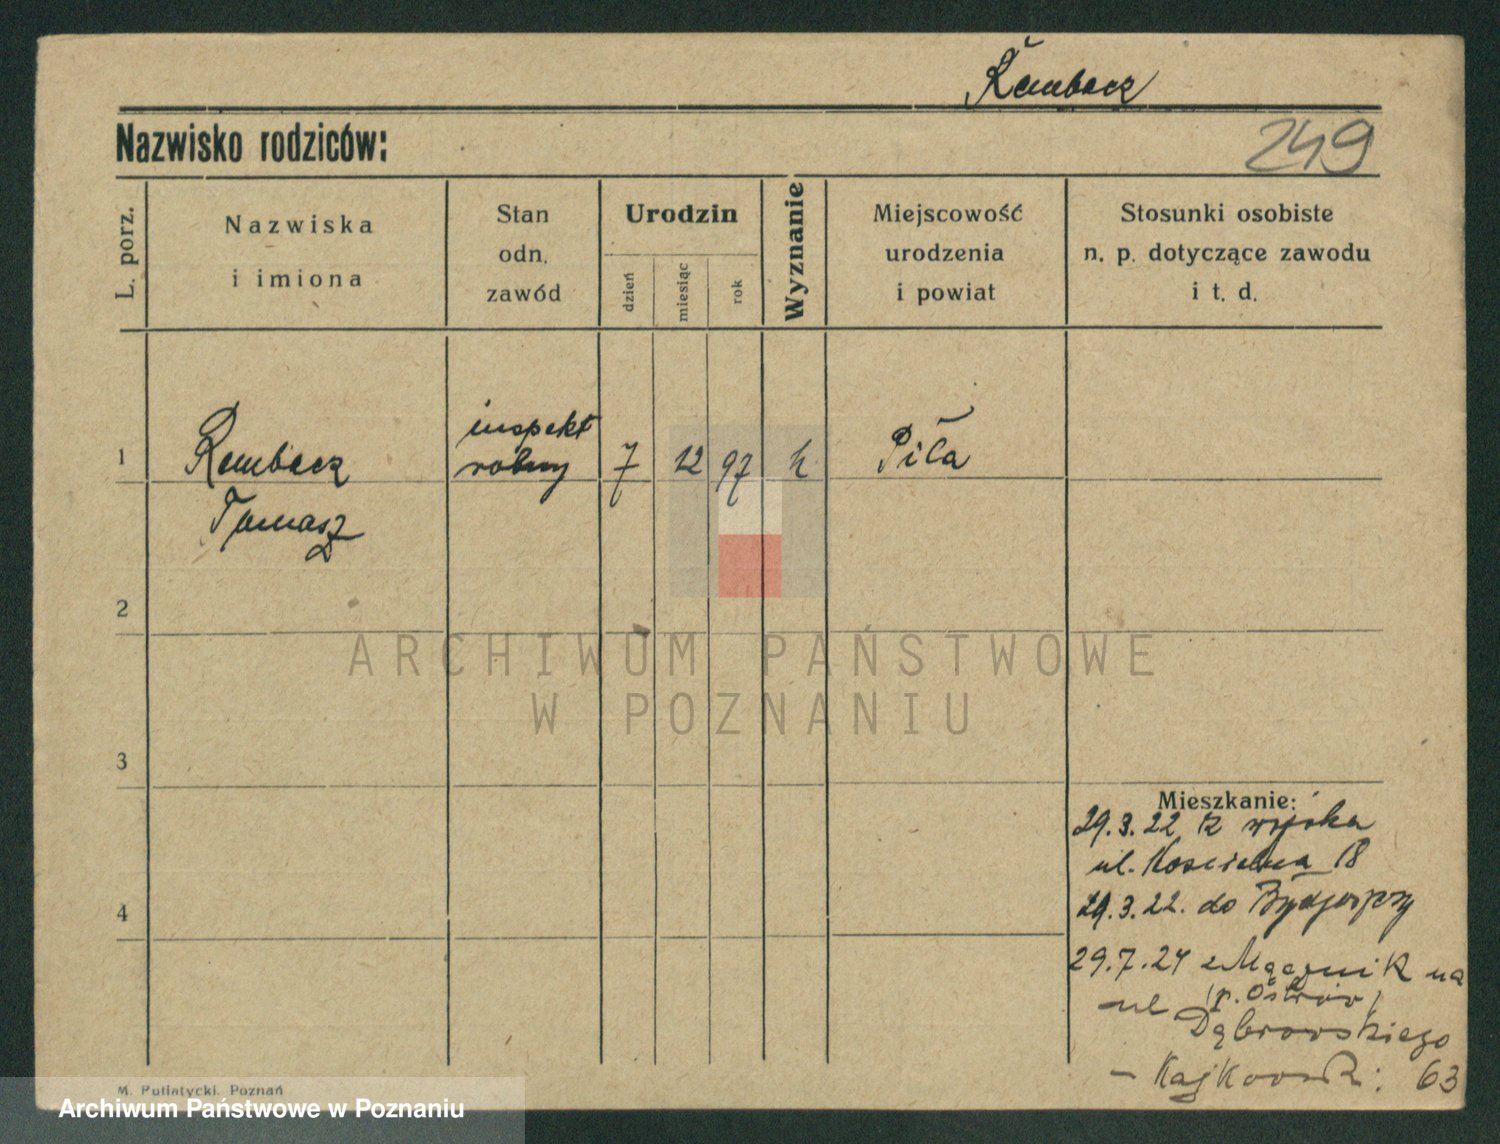 Rembacz
249
Nazwisko rodziców:
L. porz.
Nazwiska
i imiona
Stan
odn.
zawód
Urodzin
dzień
miesiąc
rok
Wyznanie
Miejscowość
urodzenia
i powiat
Stosunki osobiste
n. p. dotyczące zawodu
i t. d.
1
Rembacz
Tomasz
inspekt
rolny
7
12
97
k
Piła
2
ARCHIWUM PAŃSTWOWE
W POZNANIU
3
4
Mieszkanie:
29.3.22 z
ul. Kościelna 18
29.3.22. do Bydgoszczy
29.7.24 z Mącznik na
(p. Ostrów)
ul Dąbrowskiego
– Kajkowski: 63
M. Putiatycki, Poznań
Archiwum Państwowe w Poznaniu